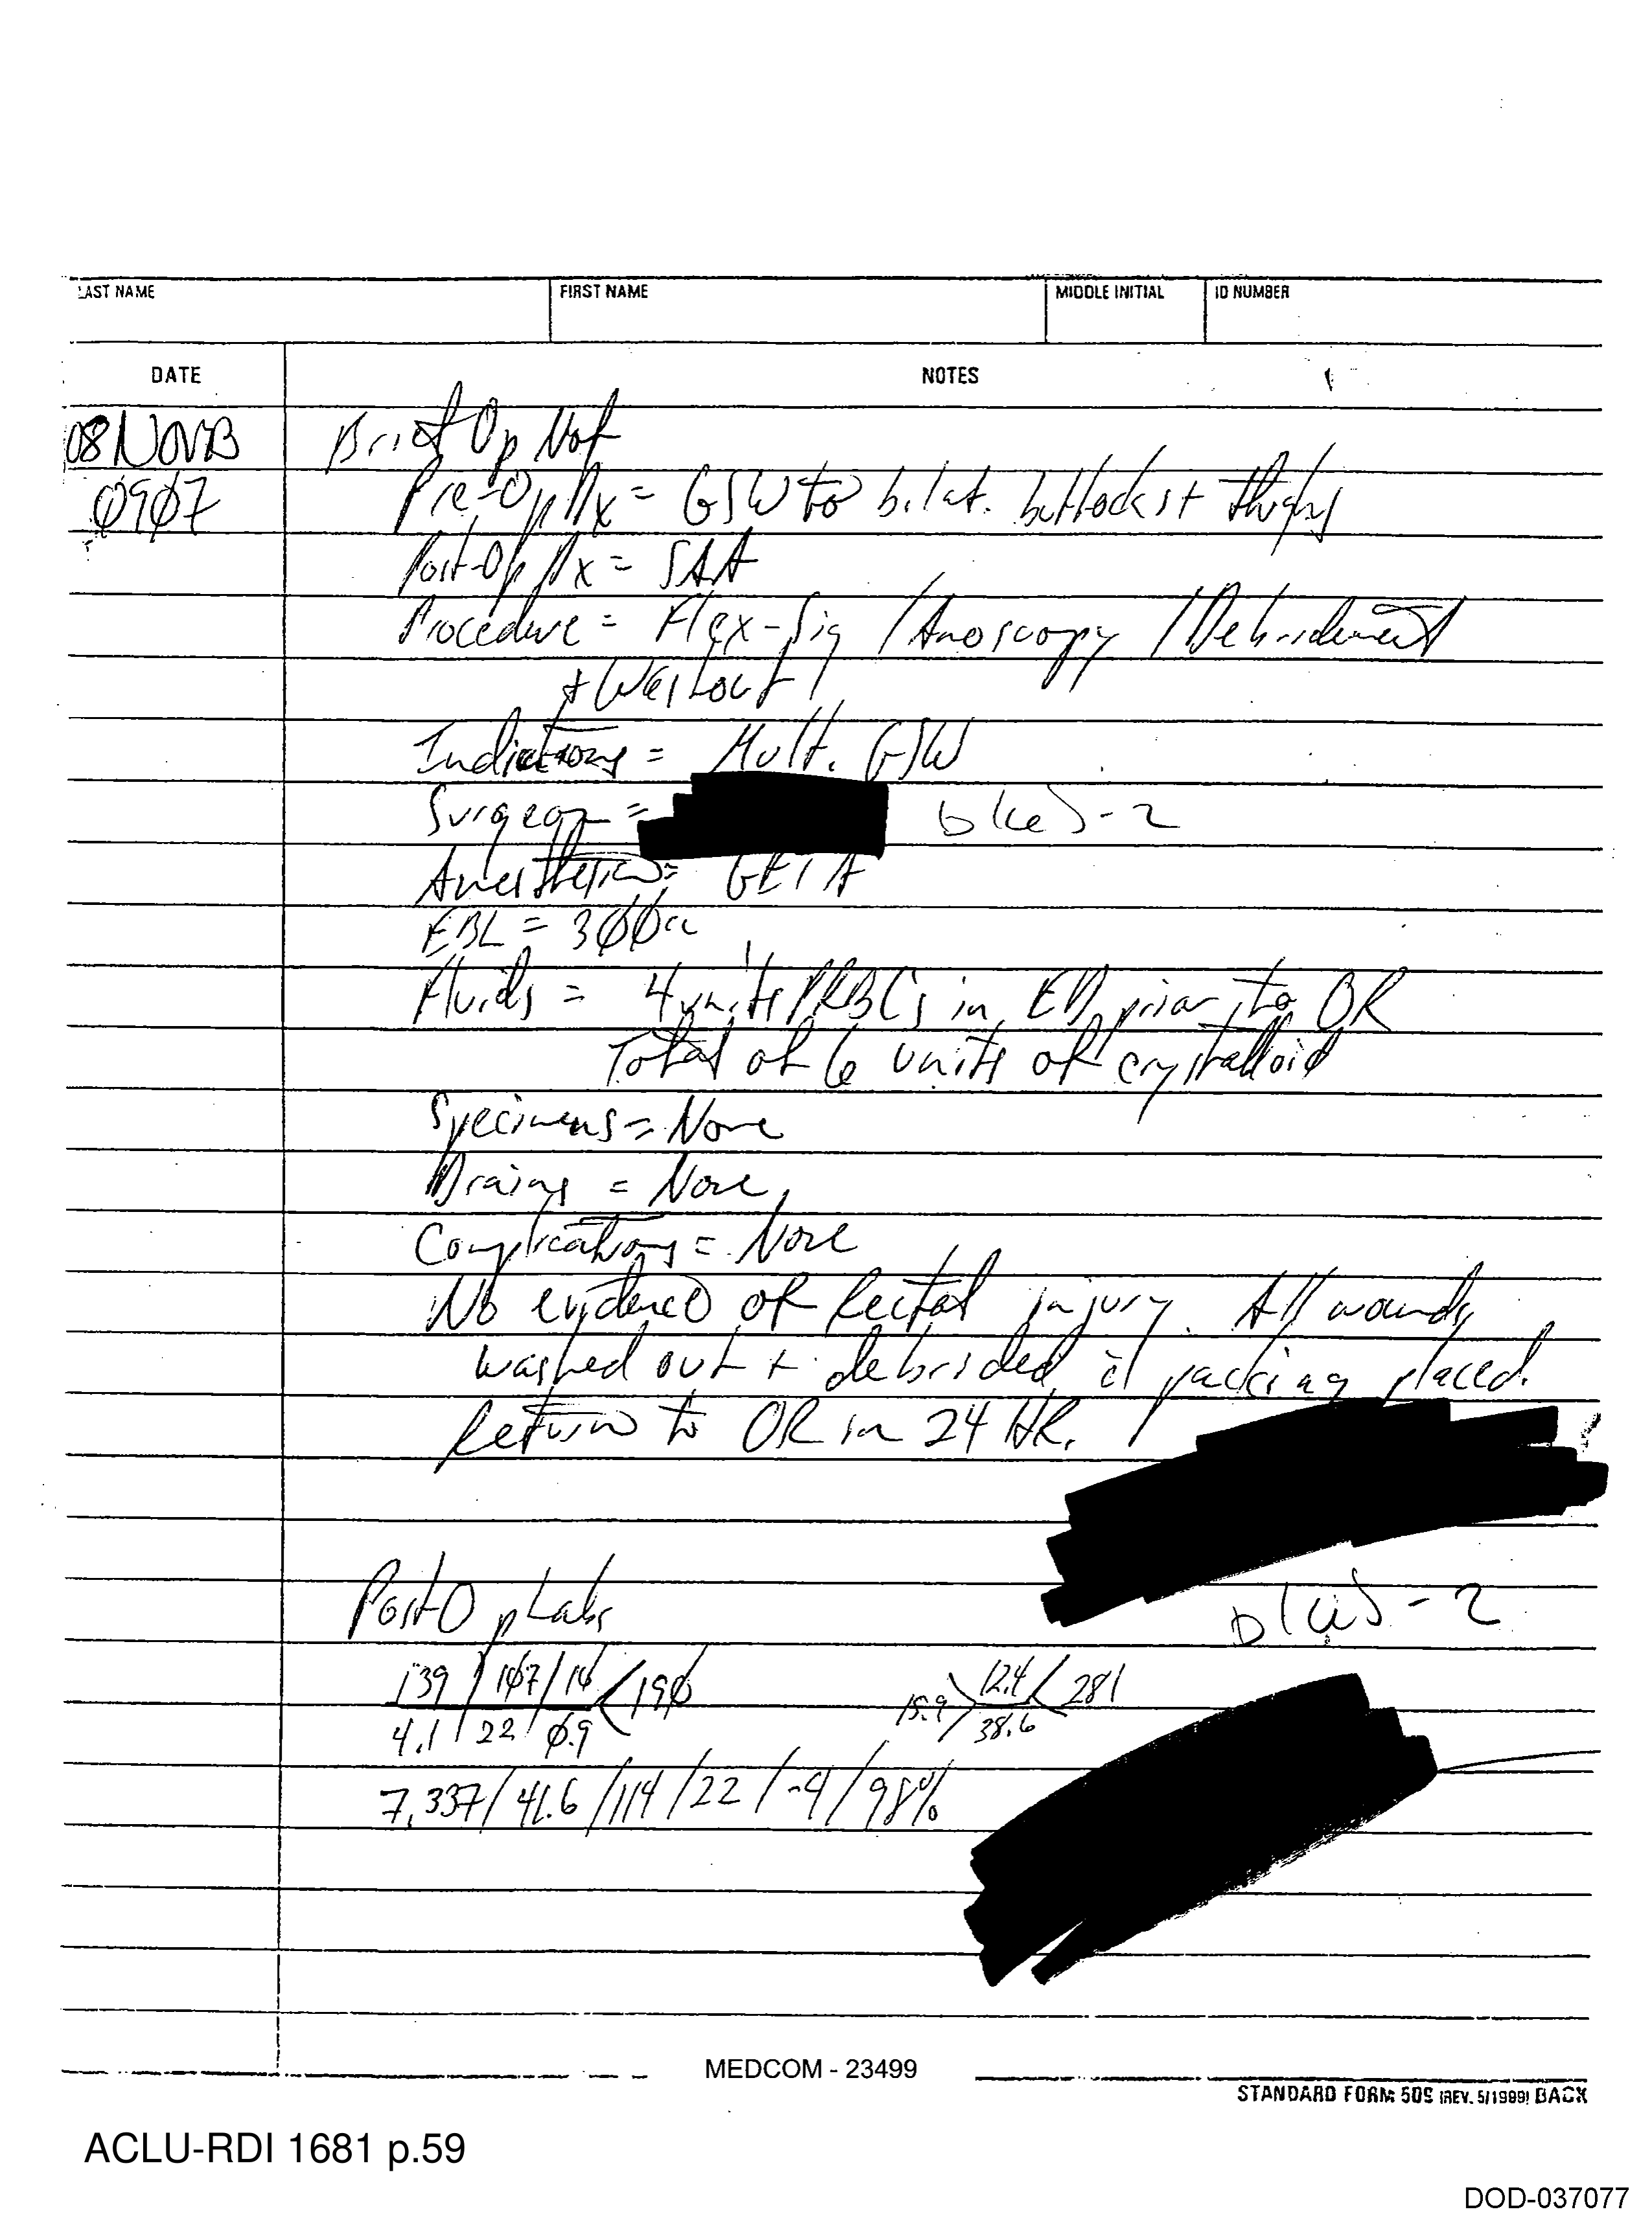 LAST NAME FIRST NAME MIDDLE INITIAL ID NUMBER
DATE NOTES
08 NOV03 Brief Op Not
0907 Pre-Op Dx = GSW to bilat. buttocks + thighs
Post-Op Dx = SAA
Procedure = Flex-Sig / Anoscopy / Debridement
+ Washout
Indications = Mult. GSW
Surgeon = b(6)-2
Anesthesia = GETA
EBL = 300cc
Fluids = 4 units PRBCs in ED prior to OR
Total of 6 units of crystalloid
Specimens = None
Drains = None
Complications = None
No evidence of Rectal injury. All wounds
washed out + debrided c̄ packing placed.
Return to OR in 24 HR.
Post Op Labs b(6)-2
139 / 107 / 16 < 190 15.9 > 12.4 < 281
4.1 / 22 / 0.9 38.6
7.337 / 41.6 / 114 / 22 / -4 / 98%
MEDCOM - 23499
STANDARD FORM 509 (REV. 5/1999) BACK
ACLU-RDI 1681 p.59
DOD-037077